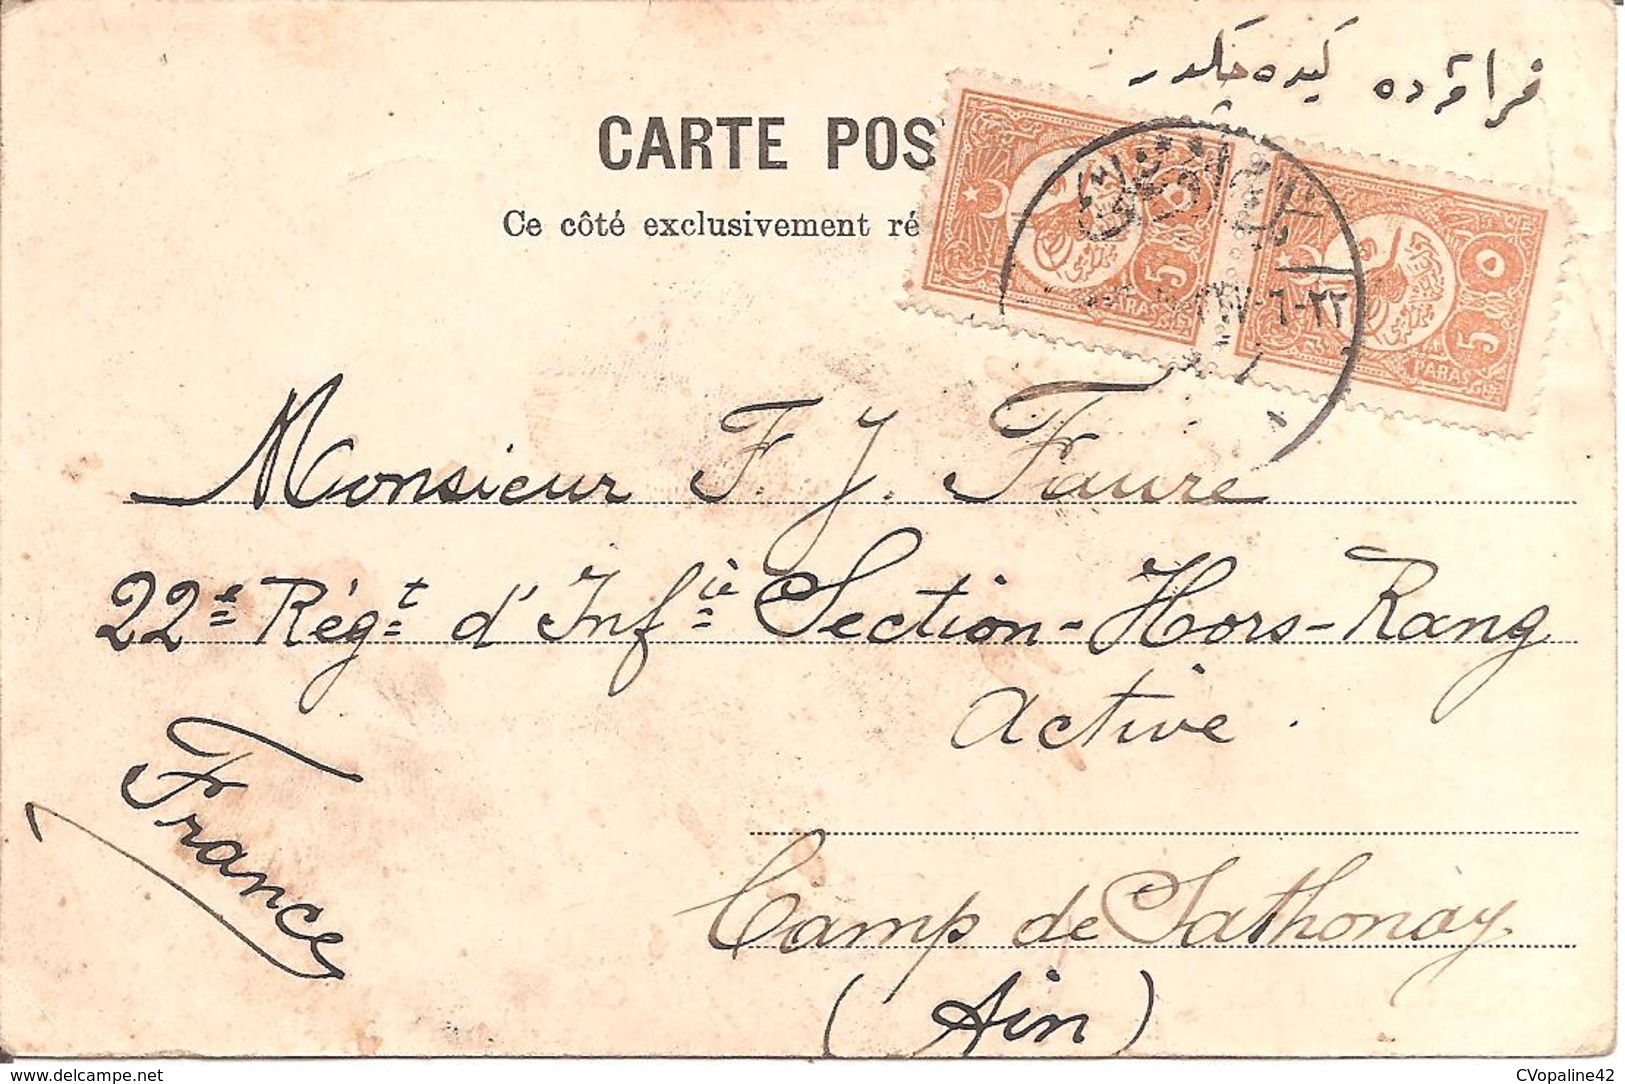 فرانسه ده كيده جكدر
CARTE POS
Ce côté exclusivement ré
٥
5 5
PARAS PARAS
Monsieur F. J. Faure
22e Régt d'Infie Section-Hors-Rang
active.
France
Camp de Sathonay
(Ain)
CVopaline42